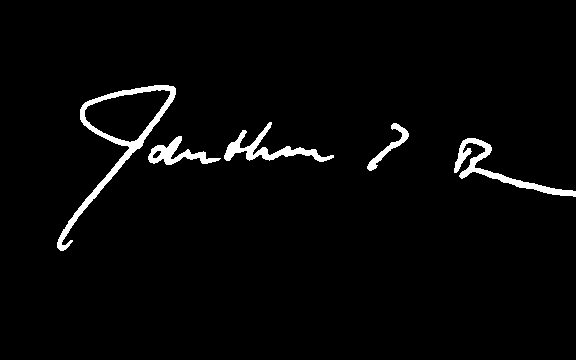 Jonathan P B